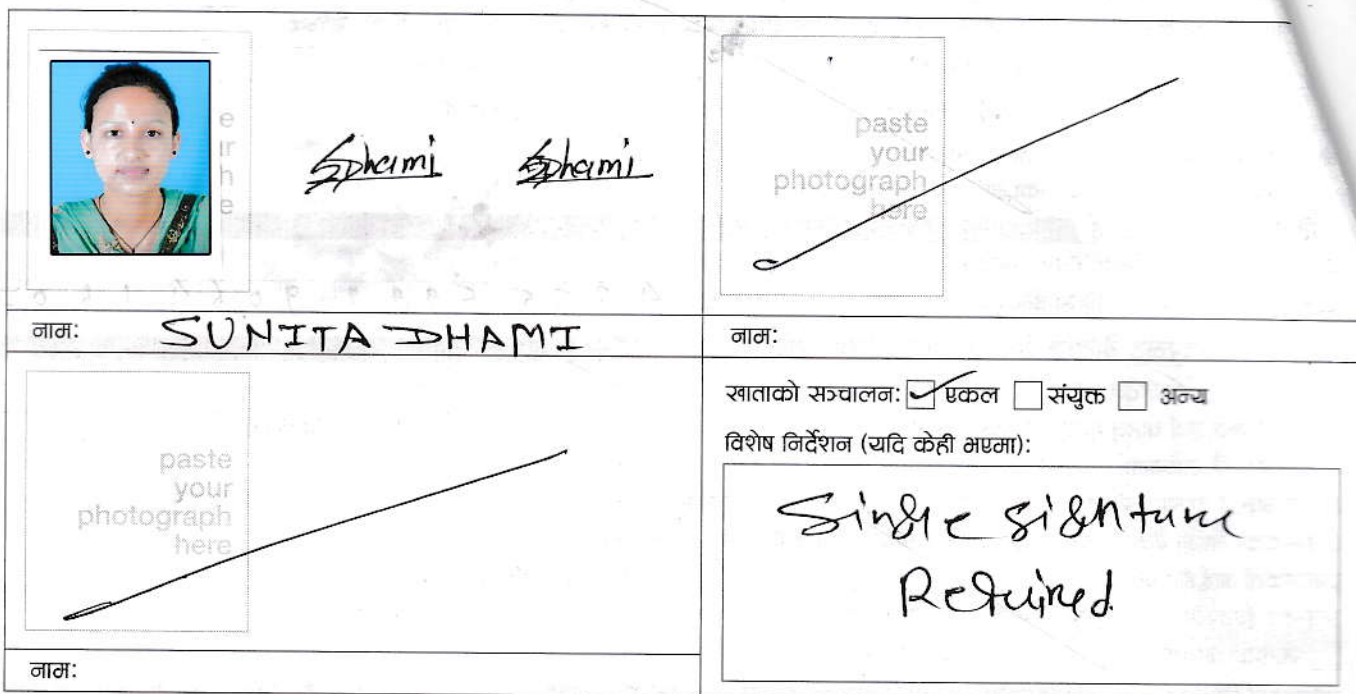 SDhami SDhami
paste
your
photograph
here
नाम: SUNITA DHAMI
नाम:
paste
your
photograph
here
खाताको सञ्चालन: एकल संयुक्त अन्य
विशेष निर्देशन (यदि केही भएमा):
Single signture
Required
नाम: